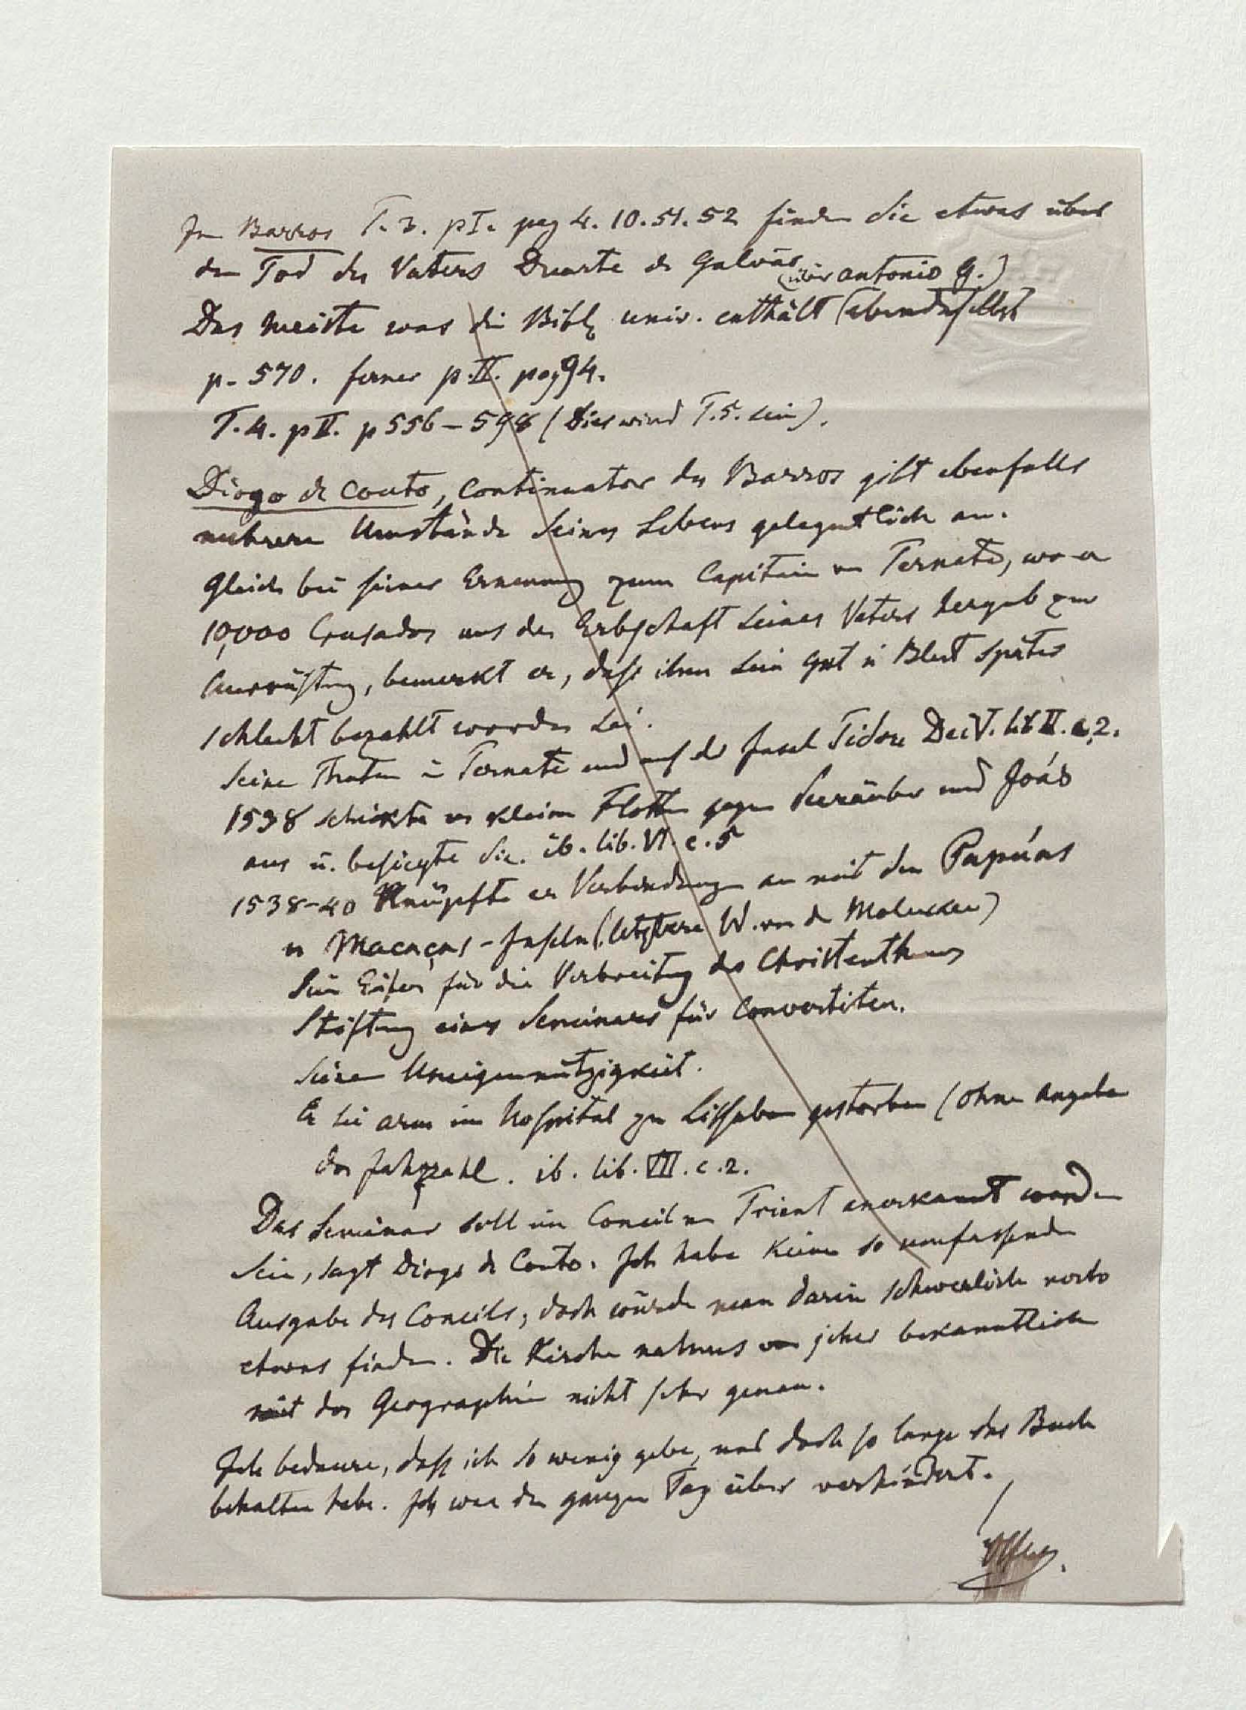 In Barros T. 3. pI. pag 4. 10. 51. 52 finden Sie etwas über
den Tod des Vaters Duarte de Galvão
(über Antonio G.)
Das meiste was die Bibl. univ. enthält (ebendaselbst
p. 570. ferner p. II. pag 94.
T. 4. p II. p 556–598 (Dies wird T. 5. sein).
Diogo de Couto, Continuator des Barros gibt ebenfalls
mehrere Umstände seines Lebens gelegentlich an.
Gleich bei seiner Ernennung zum Capitain von Ternate, wo er
10,000 Crusados aus der Erbschaft seines Vaters hergab zur
Ausrüstung, bemerkt er, daß ihm sein Gut u Blut später
schlecht bezahlt worden sei.
Seine Thaten in Ternate und auf der Insel Tidore Dec V. lib II. c. 2.
1538 schickte er kleine Flotten gegen Seeräuber und Joáo
aus u. besiegte sie. ib. lib. VI. c. 5
1538–40 Knüpfte er Verbindungen an mit den Papúas
u Macaças-Inseln (letztere W. von den Molucken)
Sein Eifer für die Verbreitung des Christenthums
Stiftung eines Seminars für Convertiten.
Seine Uneigennützigkeit.
Er sei arm im Hospital zu Lissabon gestorben (ohne Angabe
der Jahrzahl. ib. lib. VII. c. 2.
Das Seminar soll im Concil von Trient anerkannt worden
sein, sagt Diogo de Couto. Ich habe keine so umfassende
Ausgabe des Concils, doch würde man darin schwerlich
etwas finden. Die Kirche nahm es von jeher bekanntlich
mit der Geographie nicht sehr genau.
Ich bedaure, daß ich so wenig gebe, und doch so lange das Buch
behalten habe. Ich war den ganzen Tag über verhindert.